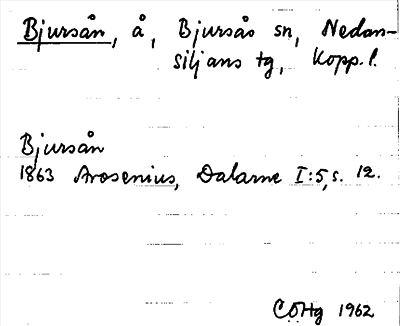 Bjursån, å, Bjursås sn, Nedan-
siljans tg, Kopp. l.
Bjursån
1863 Arosenius, Dalarne I:5, s. 12.
CÖHg 1962